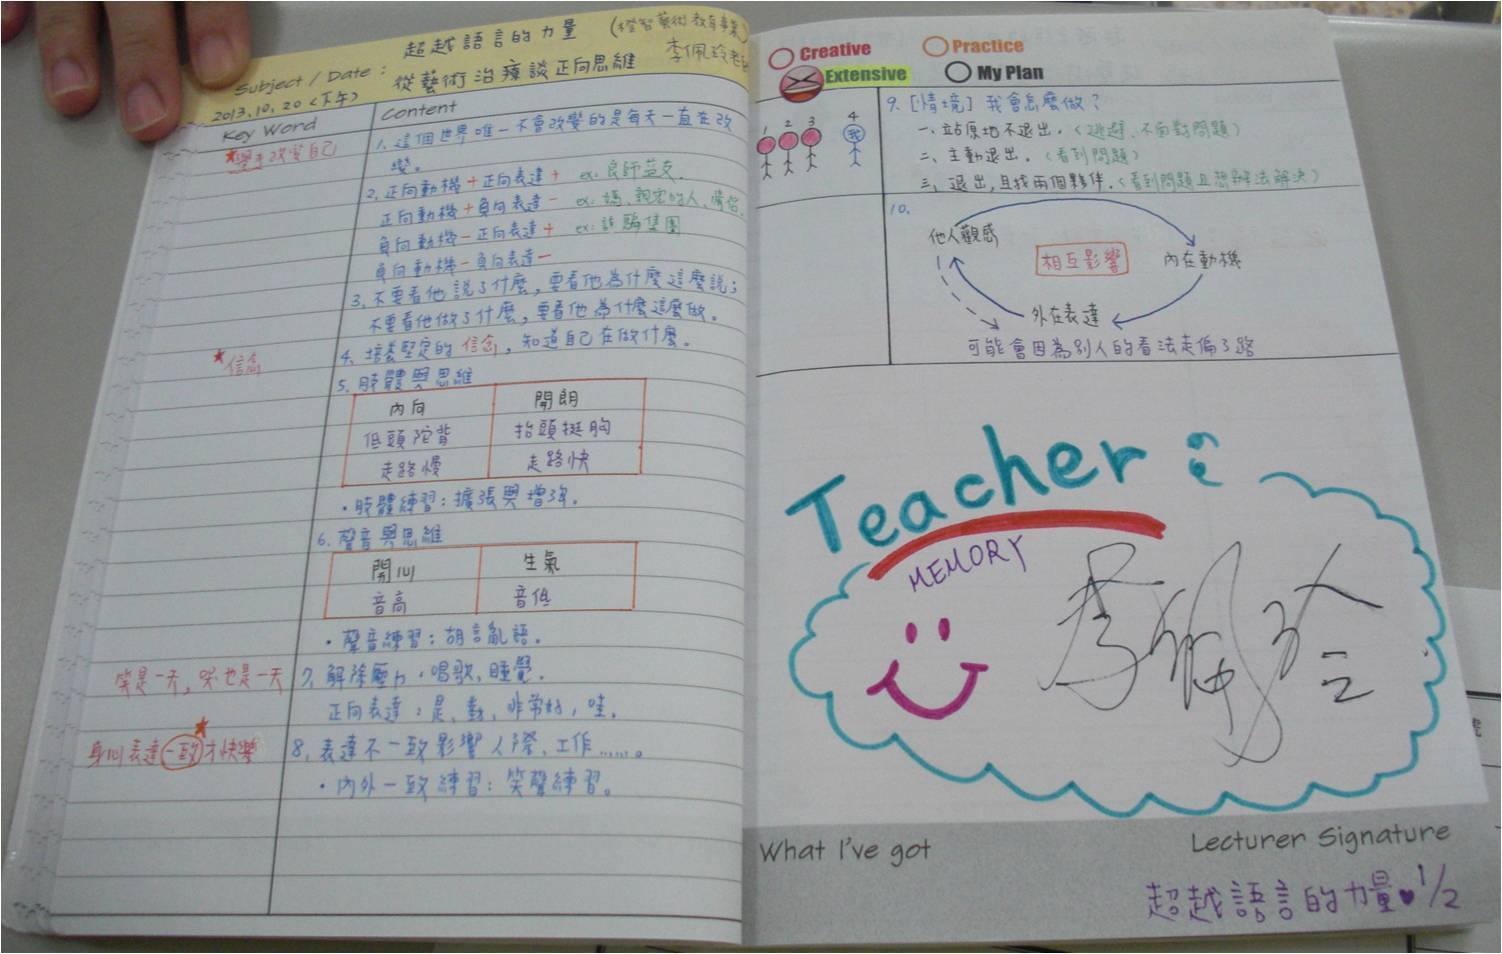 超越語言的力量
李佩玲老師
Subject / Date：從藝術治療談正向思維
2013.10.20（下午）
Key Word
Content
改變自己
1. 這個世界唯一不會改變的是每天一直在改
變。
2. 正向動機＋正向表達＋ ex: 良師益友.
正向動機＋負向表達－ ex: 媽、親密的人、
負向動機－正向表達＋ ex: 詐騙集團
負向動機－負向表達－
3. 不要看他說了什麼，要看他為什麼這麼說；
不要看他做了什麼，要看他為什麼這麼做。
信念
4. 培養堅定的信念，知道自己在做什麼。
5. 肢體與思維
內向 開朗
低頭陀背 抬頭挺胸
走路慢 走路快
·肢體練習：擴張與增強。
6. 聲音與思維
開心 生氣
音高 音低
·聲音練習：胡言亂語。
笑是一天，哭也是一天
7. 解除壓力·唱歌、睡覺.
正向表達：是、對、非常好，哇.
身心表達一致才快樂
8. 表達不一致影響人際、工作……。
·內外一致練習：笑聲練習。
Creative
Practice
Extensive
My Plan
1 2 3 4
我
9. [情境] 我會怎麼做？
一、站原地不退出.（逃避、不面對問題）
二、主動退出.（看到問題）
三、退出，且找兩個夥伴.（看到問題且想辦法解決）
10.
他人觀感
相互影響
內在動機
外在表達
可能會因為別人的看法走偏了路
Teacher:
MEMORY
李佩玲
What I've got
Lecturer Signature
超越語言的力量♥1/2